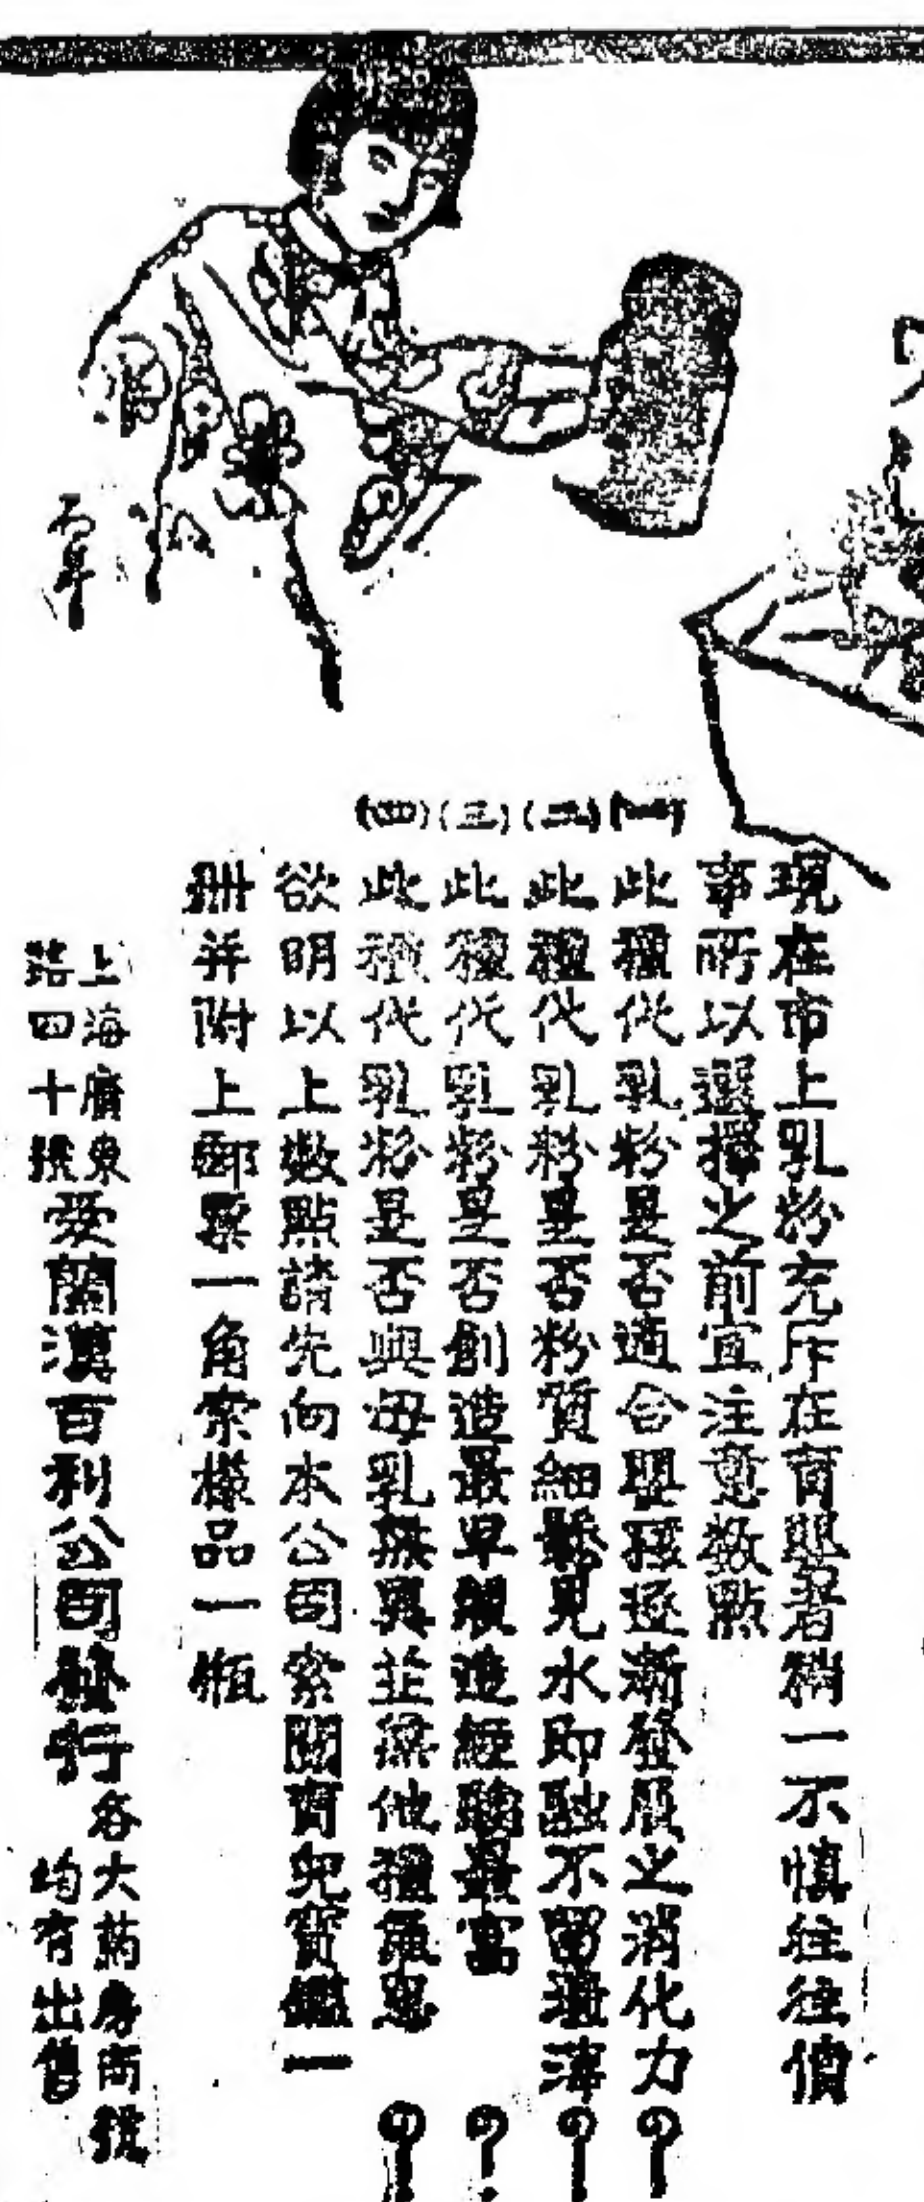 現在市上乳粉充斥在育嬰者稍一不慎往往僨
事所以選擇之前宜注意数點
(一)此種代乳粉是否適合嬰孩逐漸發展之消化力
(二)此種代乳粉是否粉質細緻見水即融不留渣滓
(三)此種代乳粉是否創造最早製造經驗最富
(四)此種代乳粉是否與母乳無異並無他種流患
欲明以上數點請先向本公司索閱育兒寶鑑一
冊并附上郵票一角索樣品一瓶
上海廣東
路四十號
愛蘭漢百利公司發行
各大藥房商號
均有出售